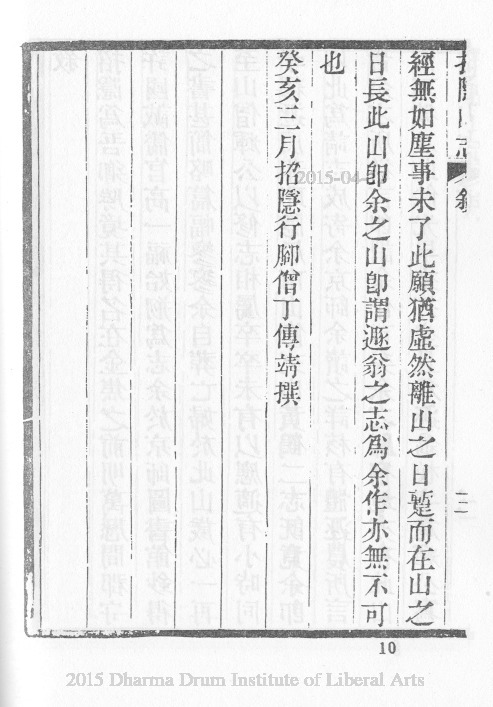 招隱山志 敘 二
經無如塵事未了此願猶虛然離山之日蹔而在山之
日長此山卽余之山卽謂遯翁之志爲余作亦無不可
也
癸亥三月招隱行腳僧丁傳靖撰
10
2015 Dharma Drum Institute of Liberal Arts